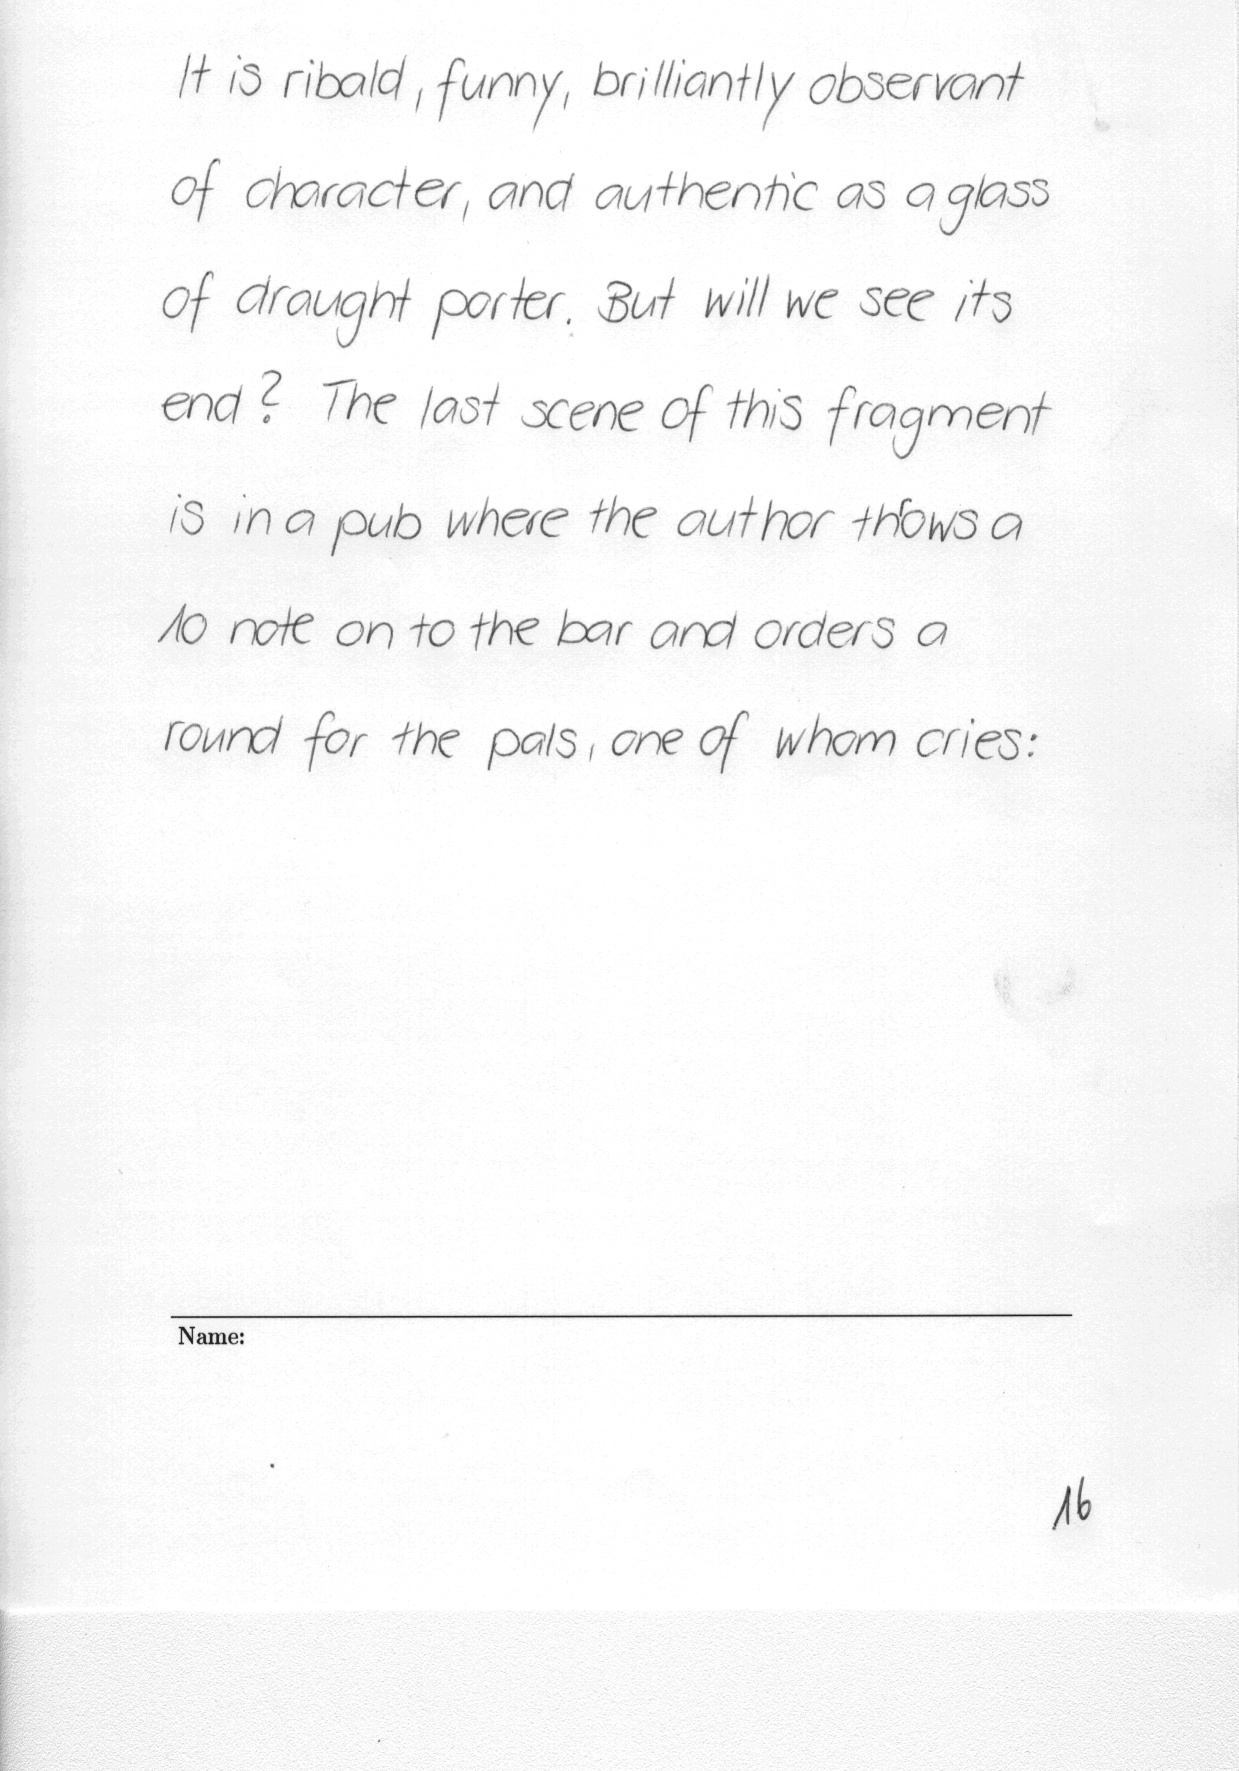 It is ribald, funny, brilliantly observant
of character, and authentic as a glass
of draught porter. But will we see its
end? The last scene of this fragment
is in a pub where the author throws a
10 note on to the bar and orders a
round for the pals, one of whom cries:
Name:
16